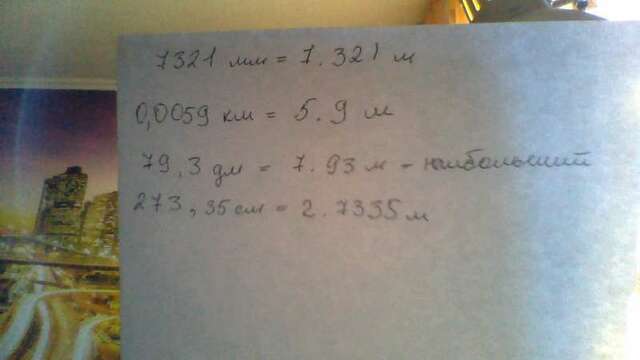 7321 мм = 7.321 м
0,0059 км = 5.9 м
79,3 дм = 7.93 м - наибольший
273,35 см = 2.7335 м